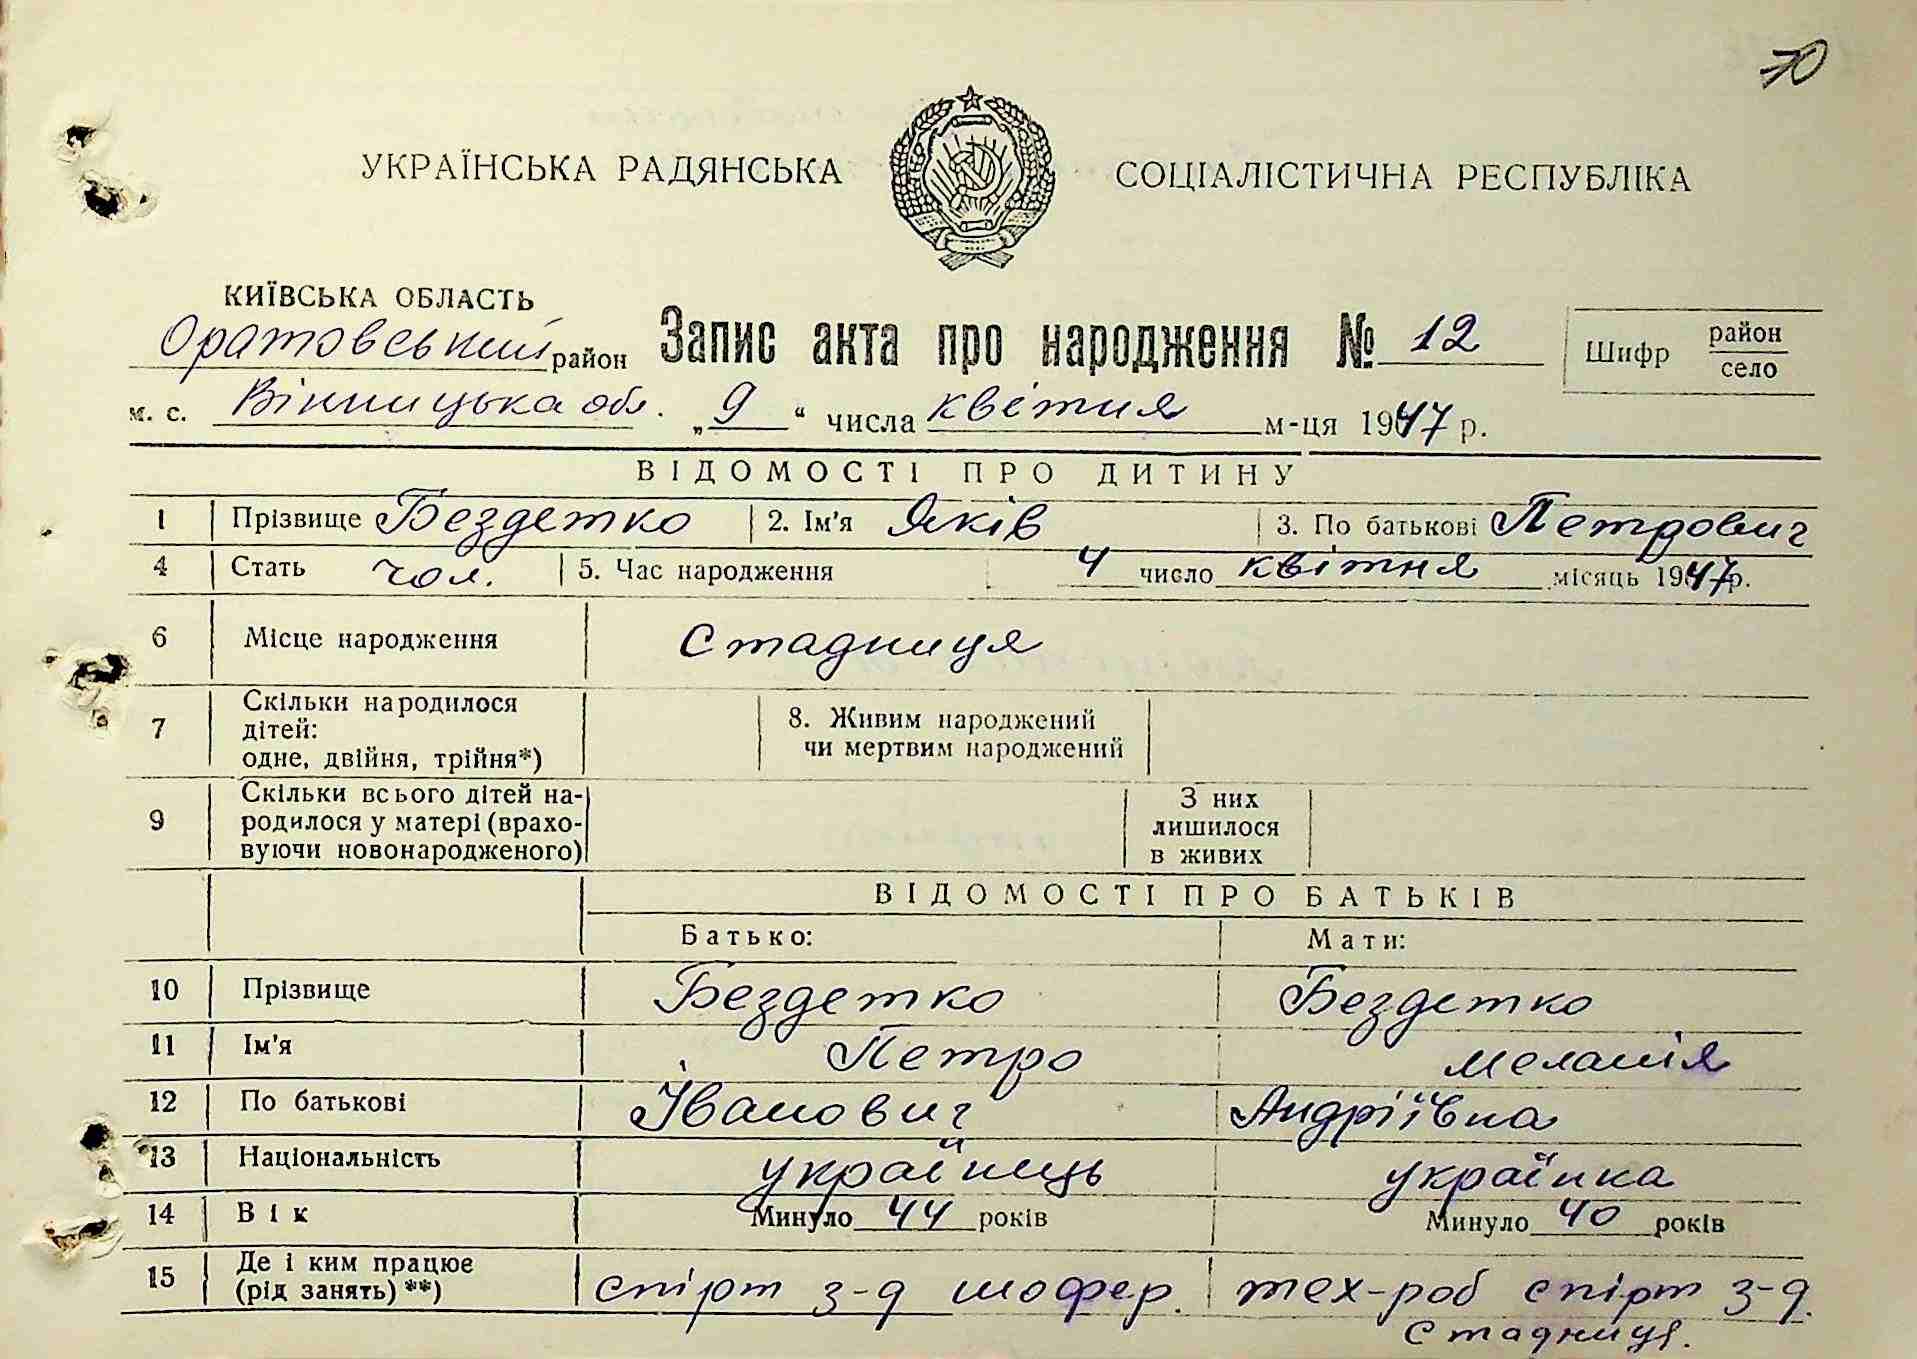 70
УКРАЇНСЬКА РАДЯНСЬКА СОЦІАЛІСТИЧНА РЕСПУБЛІКА
КИЇВСЬКА ОБЛАСТЬ
Оратовський район Запис акта про народження № 12 Шифр район село
м. с. Вінницька обл. „9“ числа квітня м-ця 1947 р.
ВІДОМОСТІ ПРО ДИТИНУ
1 Прізвище Бездетко 2. Ім'я Яків 3. По батькові Петрович
4 Стать чол. 5. Час народження 4 число квітня місяць 1947 р.
6 Місце народження Стадниця
7 Скільки народилося дітей: одне, двійня, трійня*) 8. Живим народжений чи мертвим народжений
9 Скільки всього дітей народилося у матері (враховуючи новонародженого) З них лишилося в живих
ВІДОМОСТІ ПРО БАТЬКІВ
Батько: Мати:
10 Прізвище Бездетко Бездетко
11 Ім'я Петро Меланія
12 По батькові Іванович Андріївна
13 Національність українець українка
14 Вік Минуло 44 років Минуло 40 років
15 Де і ким працює (рід занять)**) спірт з-д шофер. тех-роб спірт з-д.
Стадниця.